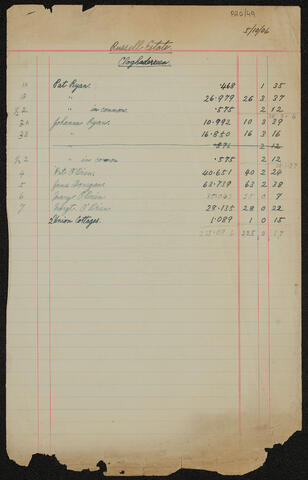 P20/49
5/10/06
Russell Estate.
Cloghadoreen
Pat Ryan. .468 1 35
" 26.979 26 3 37
2 " in common .575 2 12
Johanna Ryan. 10.992 10 3 39
" 16.850 16 3 16
" .571 2 12
2 " in common .575 2 12
4 O'Brien 40.651 40 2 24
5 Jane Donegan 63.739 63 2 38
6 Mary O'Brien 0 9
7 O'Brien 28.135 28 0 22
Union Cottages. 1.089 1 0 15
225 0 17